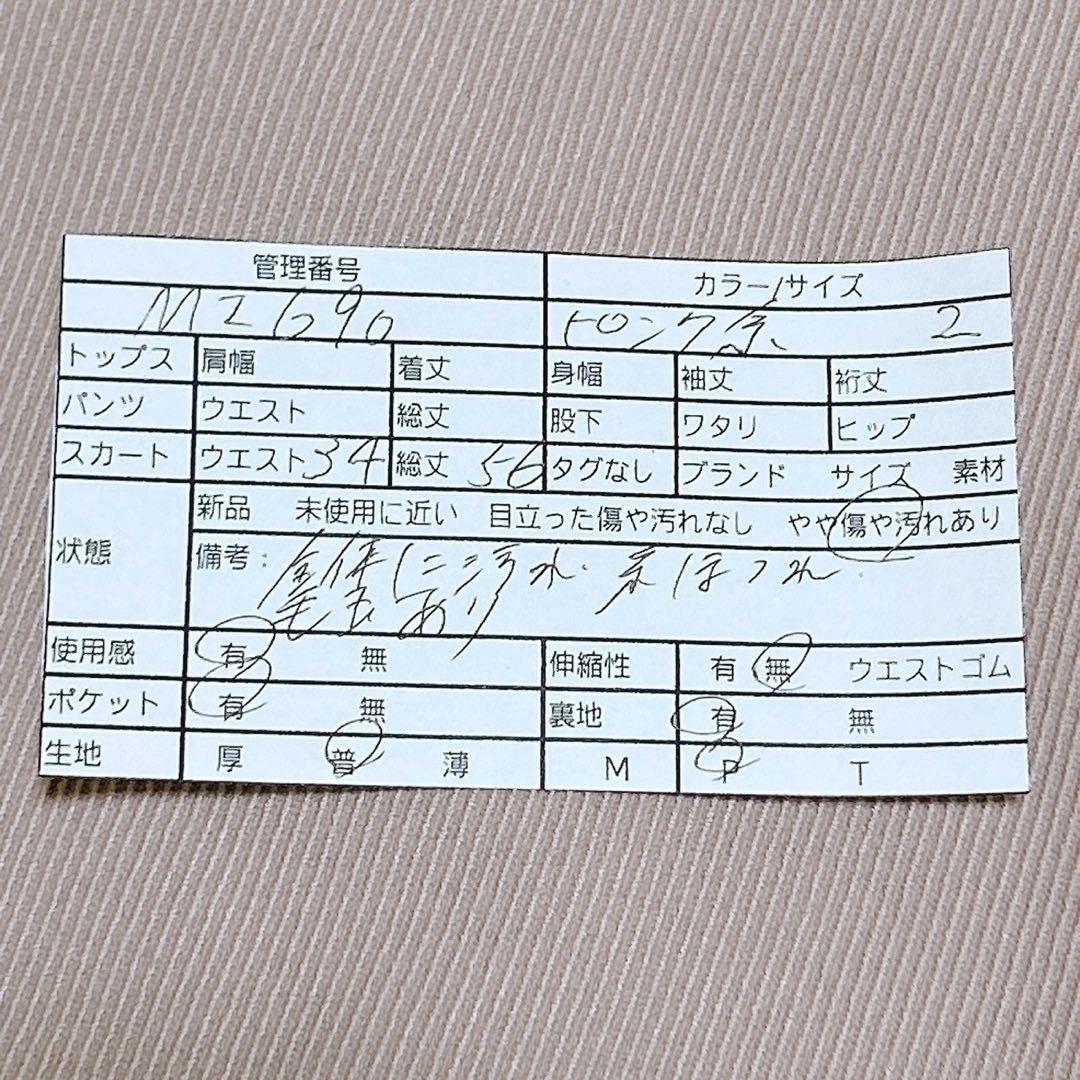 管理番号 カラー/サイズ
MI690 ピンク系 2
トップス 肩幅 着丈 身幅 袖丈 裄丈
パンツ ウエスト 総丈 股下 ワタリ ヒップ
スカート ウエスト34 総丈 56 タグなし ブランド サイズ 素材
状態 新品 未使用に近い 目立った傷や汚れなし やや傷や汚れあり
備考: 全体に汚れ・糸ほつれ
あり
使用感 有 無 伸縮性 有 無 ウエストゴム
ポケット 有 無 裏地 有 無
生地 厚 普 薄 M P T